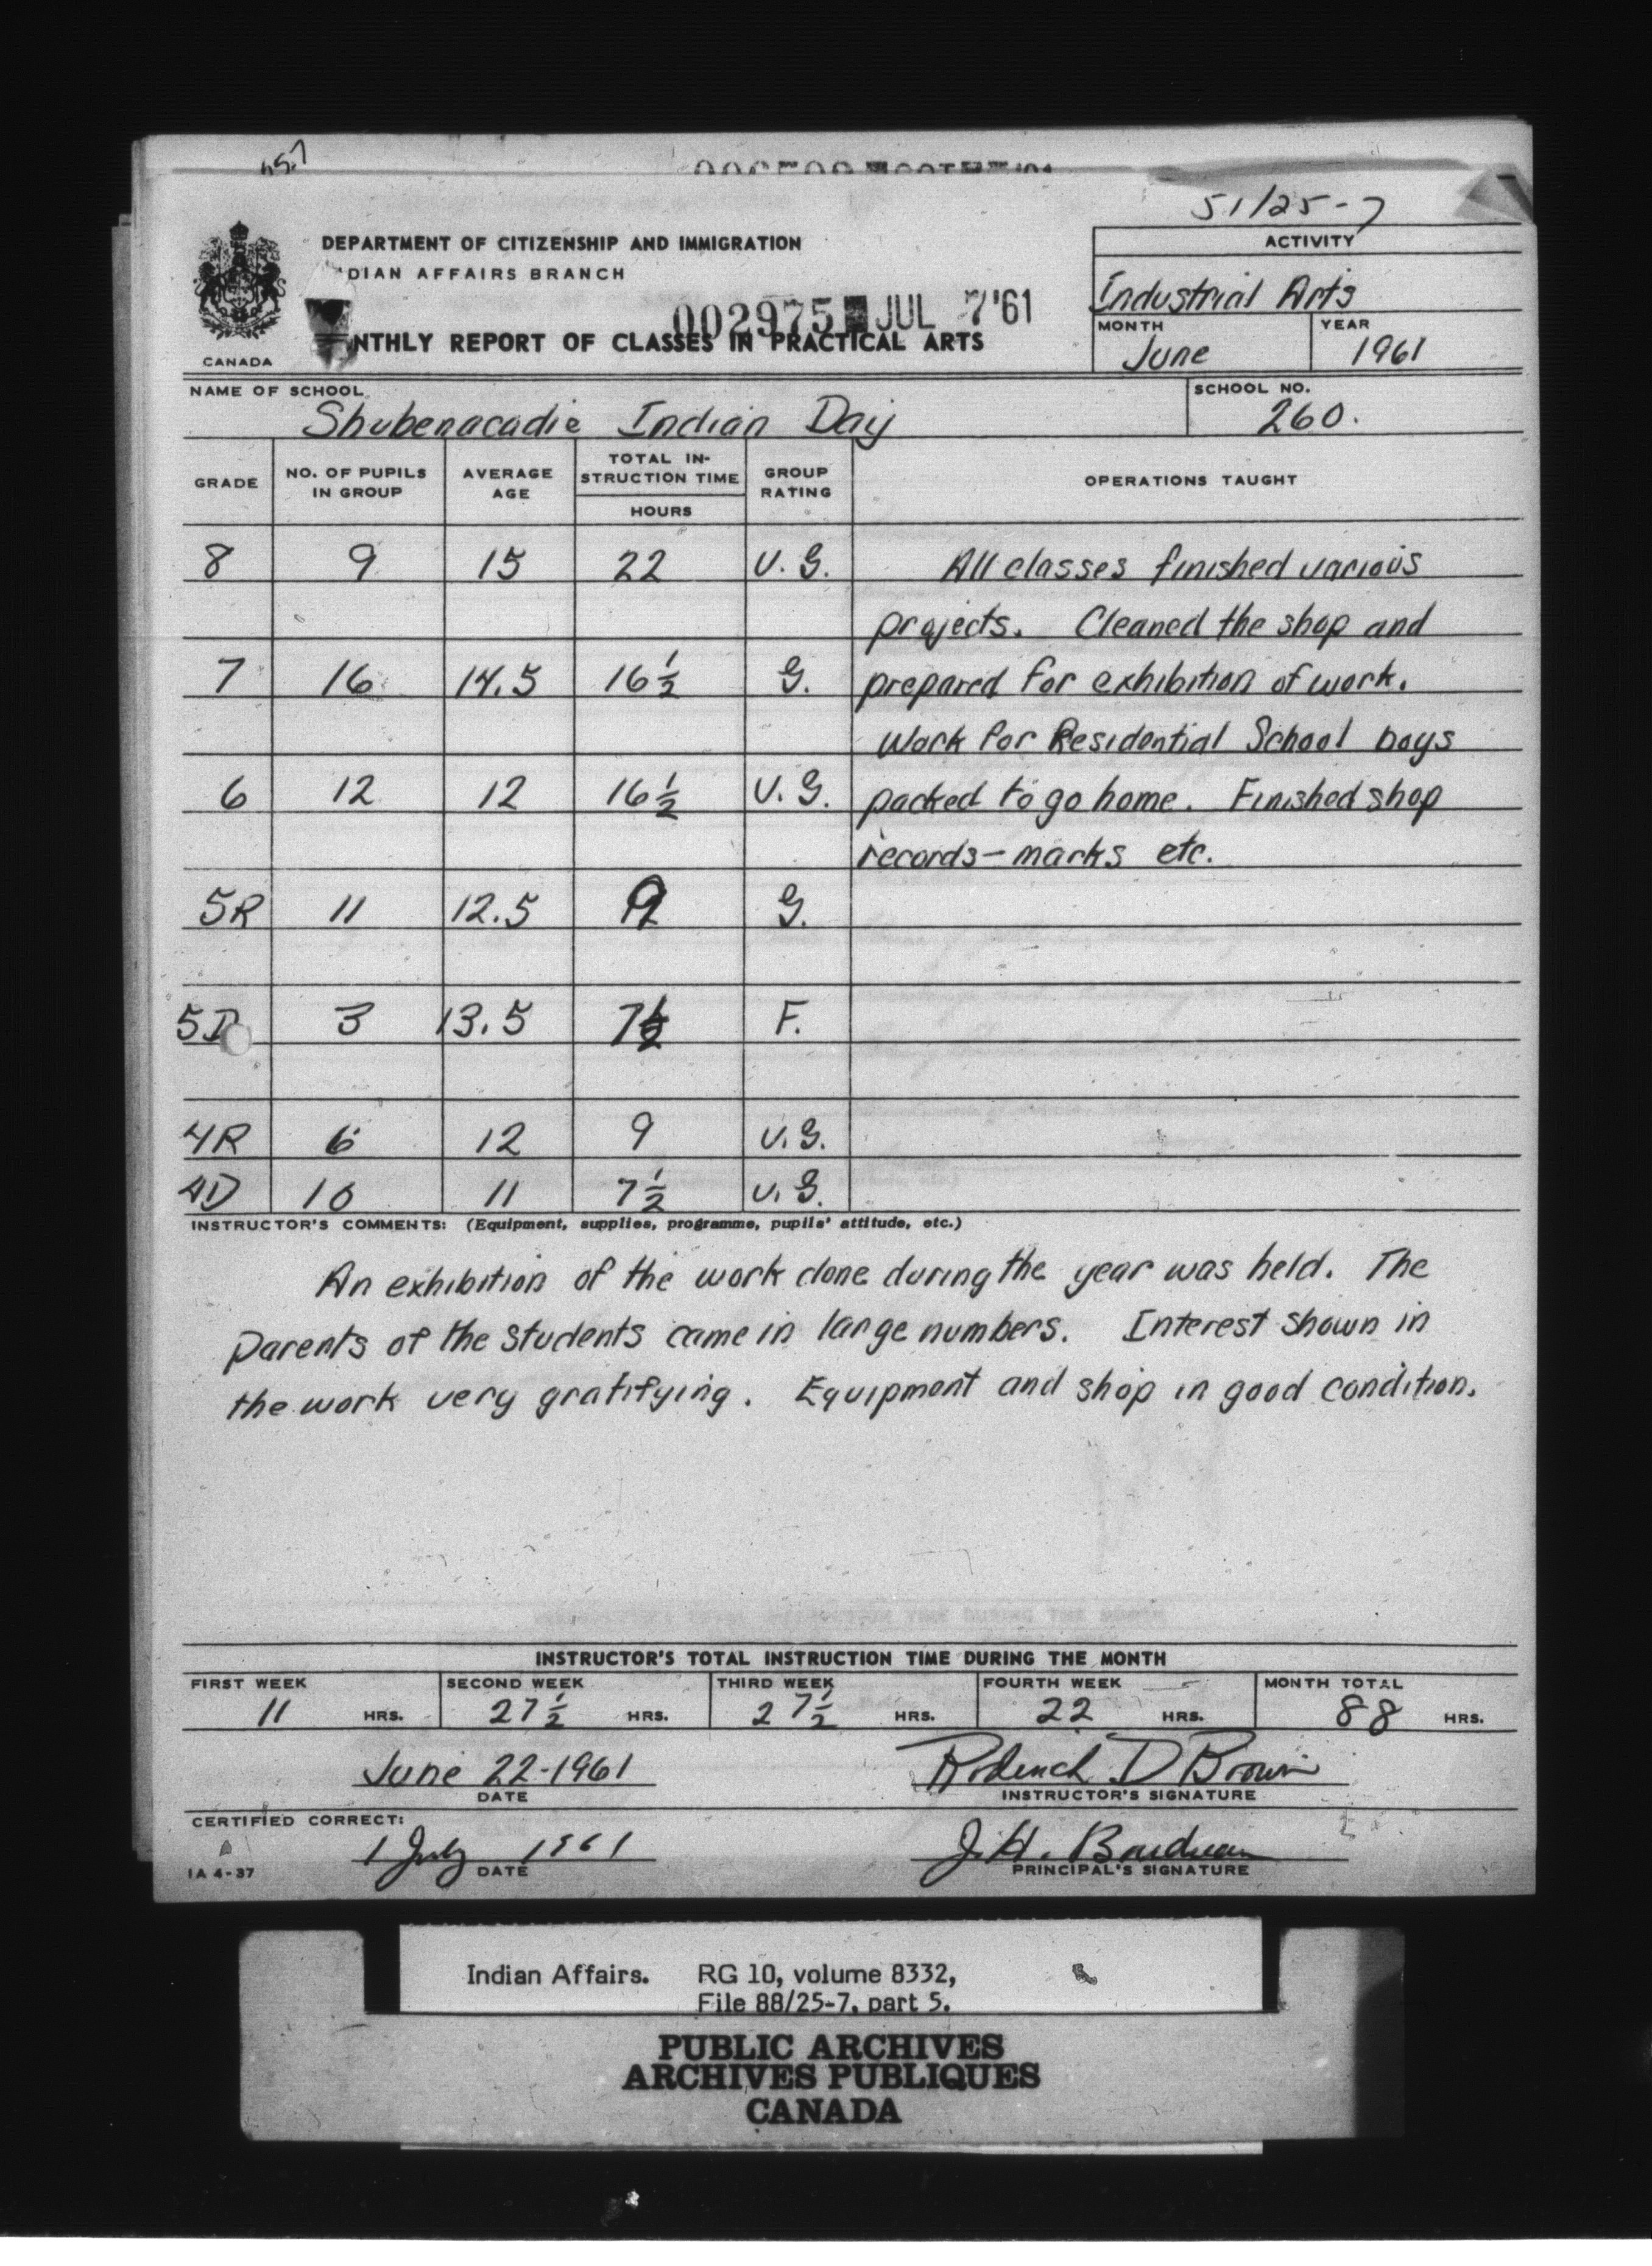 51/25-7
DEPARTMENT OF CITIZENSHIP AND IMMIGRATION
DIAN AFFAIRS BRANCH
002975 JUL 7 '61
NTHLY REPORT OF CLASSES IN PRACTICAL ARTS
CANADA
ACTIVITY
Industrial Arts
MONTH YEAR
June 1961
NAME OF SCHOOL SCHOOL NO.
Shubenacadie Indian Day 260.
GRADE NO. OF PUPILS IN GROUP AVERAGE AGE TOTAL IN-STRUCTION TIME HOURS GROUP RATING OPERATIONS TAUGHT
8 9 15 22 V.G. All classes finished various
projects. Cleaned the shop and
7 16 14.5 16 1/2 G. prepared for exhibition of work.
Work for Residential School boys
6 12 12 16 1/2 V.G. packed to go home. Finished shop
records - marks etc.
5R 11 12.5 9 G.
5D 3 13.5 7 1/2 F.
4R 6 12 9 V.G.
4D 10 11 7 1/2 V.G.
INSTRUCTOR'S COMMENTS: (Equipment, supplies, programme, pupils' attitude, etc.)
An exhibition of the work done during the year was held. The
parents of the students came in large numbers. Interest shown in
the work very gratifying. Equipment and shop in good condition.
INSTRUCTOR'S TOTAL INSTRUCTION TIME DURING THE MONTH
FIRST WEEK SECOND WEEK THIRD WEEK FOURTH WEEK MONTH TOTAL
11 HRS. 27 1/2 HRS. 27 1/2 HRS. 22 HRS. 88 HRS.
June 22-1961 Roderick D Brown
DATE INSTRUCTOR'S SIGNATURE
CERTIFIED CORRECT:
1 July 1961 J.H.
IA 4-37 DATE PRINCIPAL'S SIGNATURE
Indian Affairs. RG 10, volume 8332,
File 88/25-7, part 5.
PUBLIC ARCHIVES
ARCHIVES PUBLIQUES
CANADA